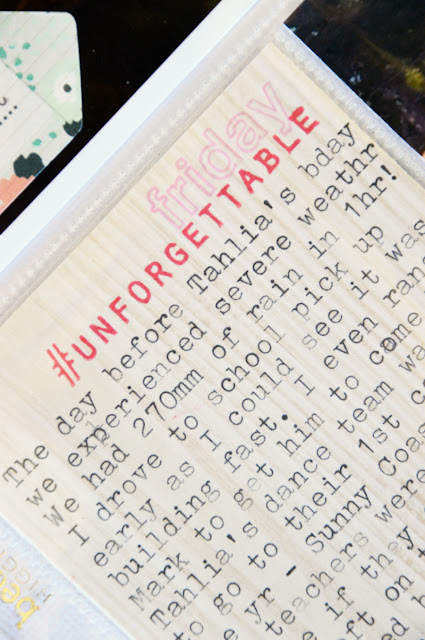 friday
#UNFORGETTABLE
The day before Tahlia's bday
we experienced severe weathr
We had 270mm of rain in 1hr!
I drove to school pick up
early as I could see it was
building fast. I even rang
Mark to get him to come
Tahlia's dance team
to go to their 1st
yr - Sunny
teachers were
if they
on